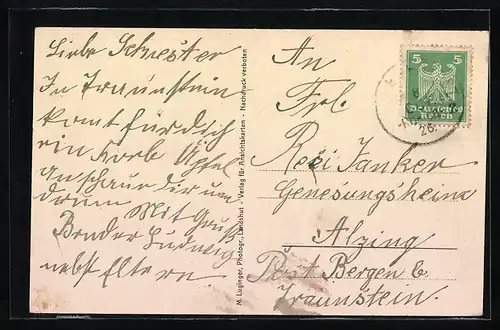 Liebe Schwester
In Traunstein
komt für dich
ein Korb Äpfel
anschaun dir um
drum
Mit Gruß
Bruder Ludwig
nebst Eltern
M. Luginger, Photogr., Landshut - Verlag für Ansichtskarten - Nachdruck verboten
An
Frl.
Resi Janker
Genesungsheim
Alzing
Post Bergen b.
Traunstein.
5 5
Deutsches
Reich
26.